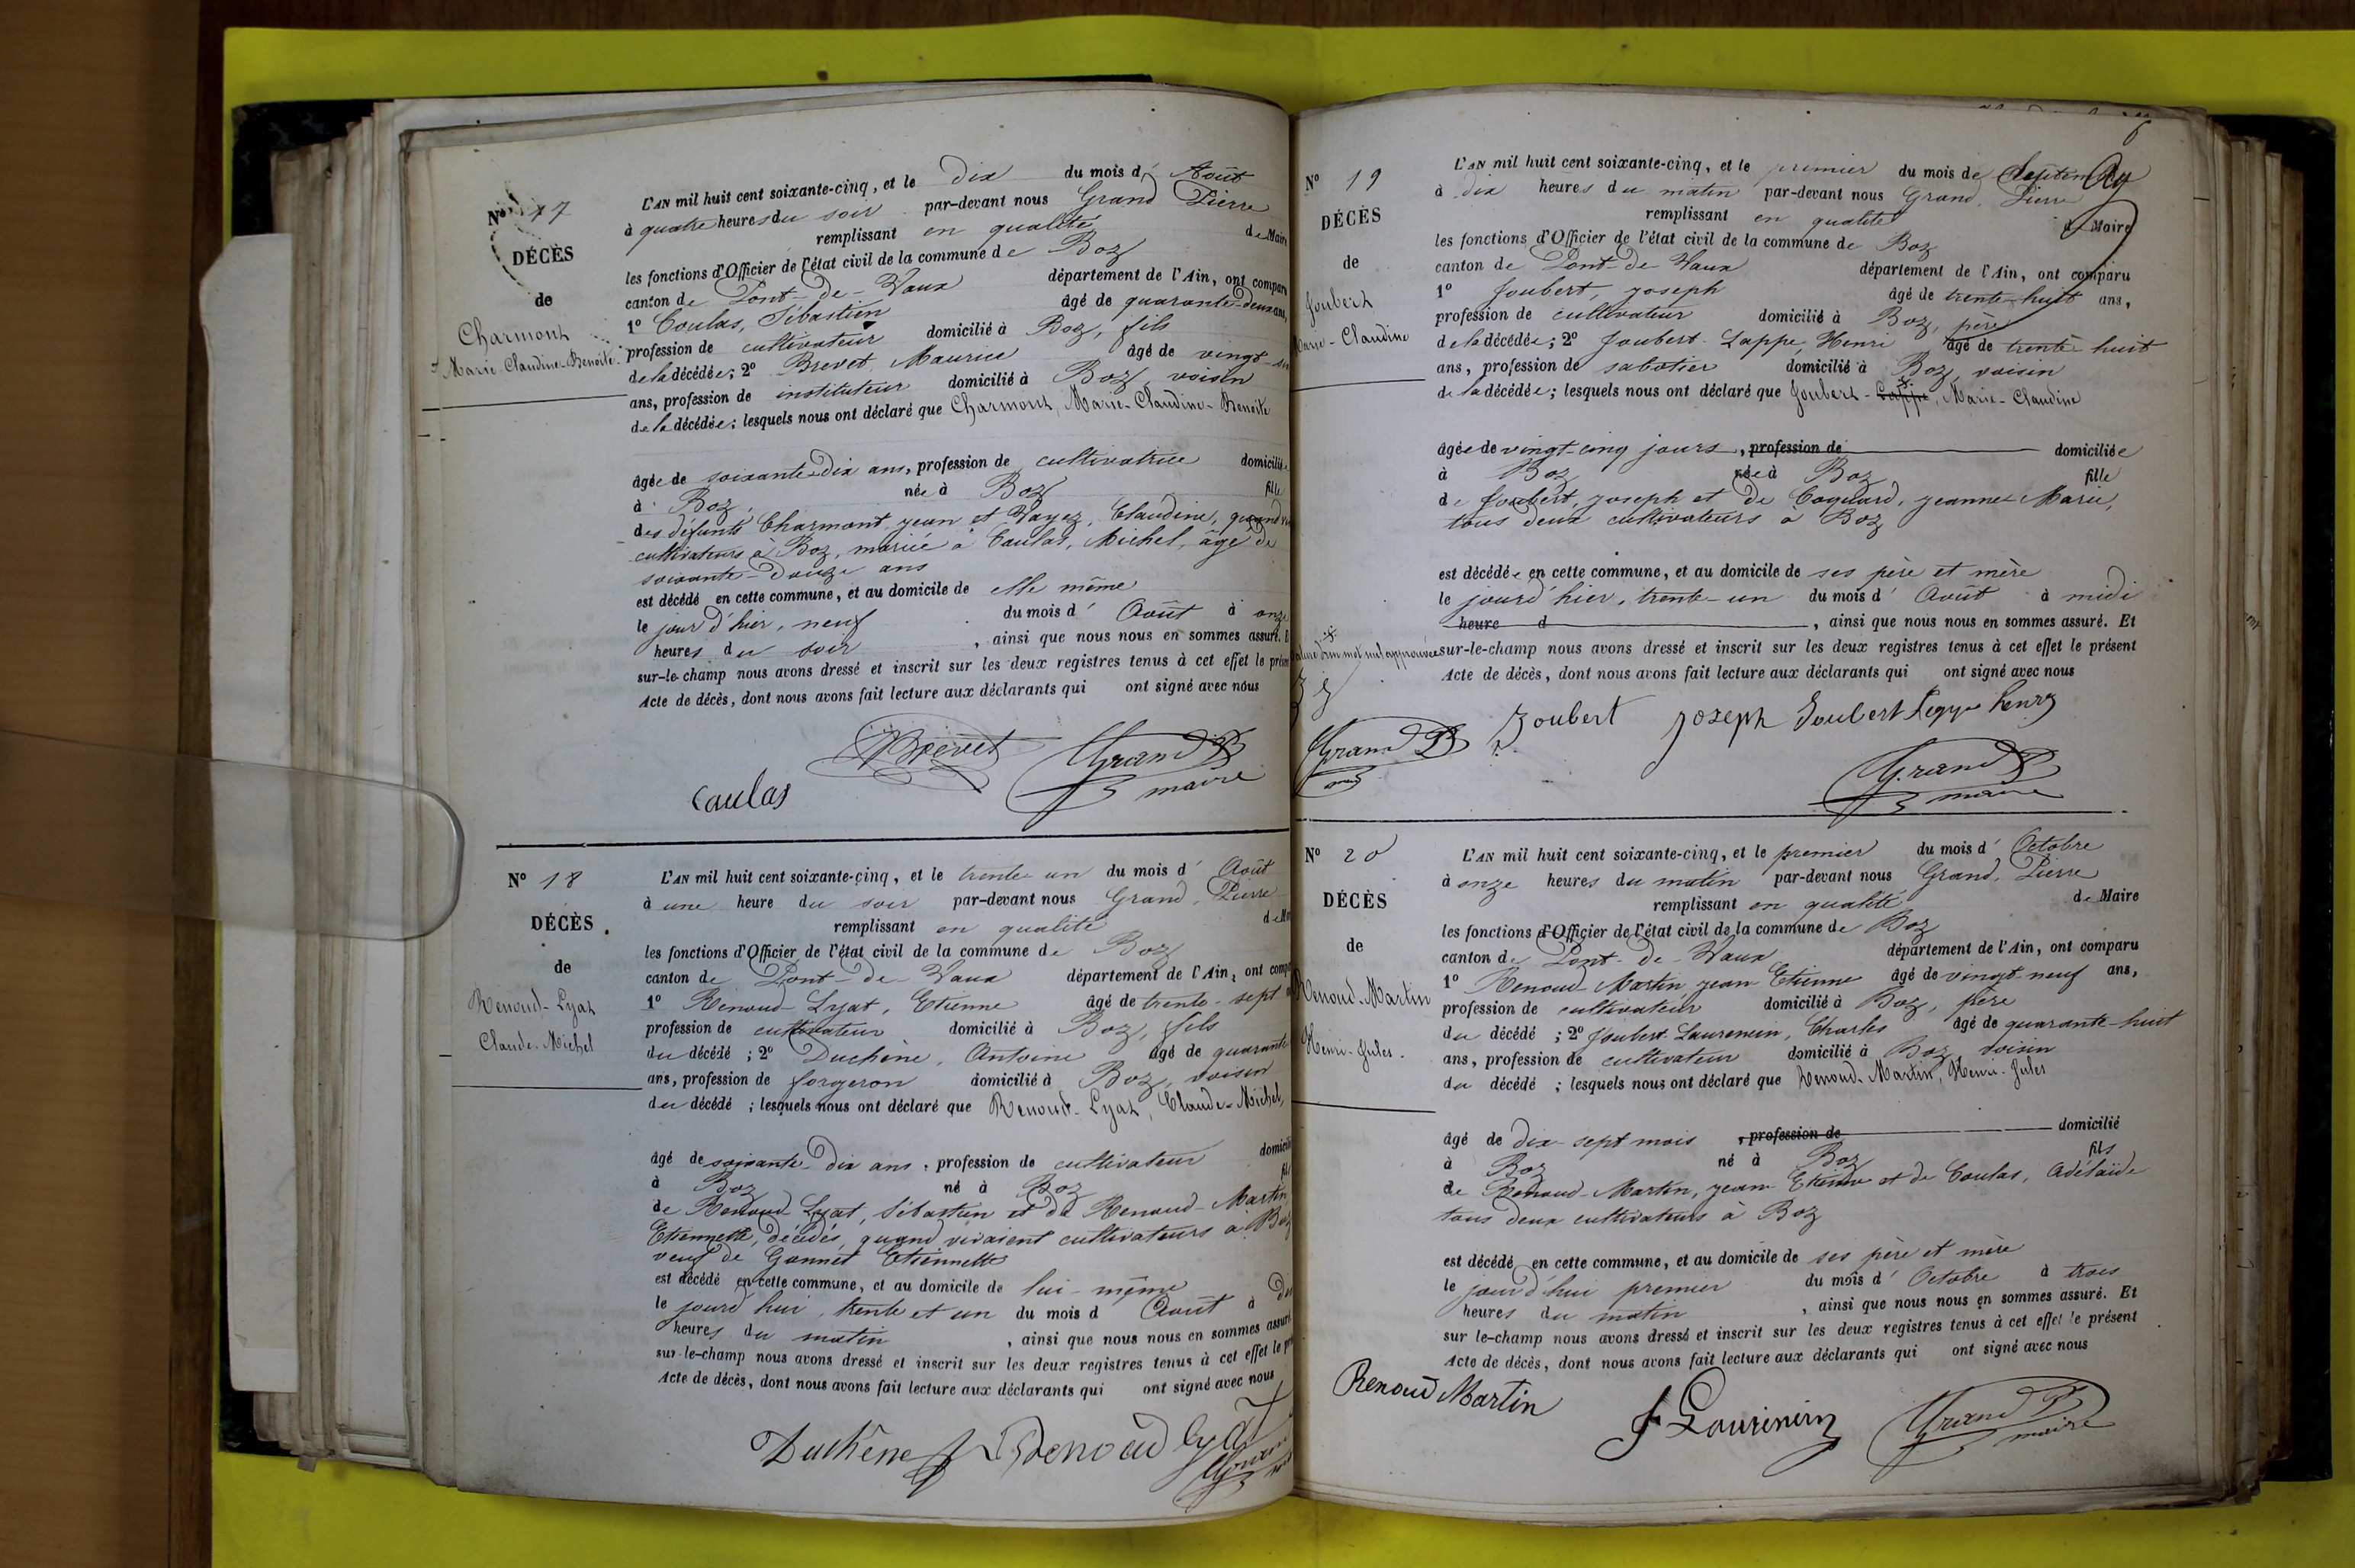 N° 17
DÉCÈS
de
Charmont
Marie-Claudine-Benoîte.
L'AN mil huit cent soixante-cinq, et le dix du mois d' Août
à quatre heures du soir par-devant nous Grand Pierre
remplissant en qualité de Maire
les fonctions d'Officier de l'état civil de la commune de Boz
canton de Pont-de-Vaux département de l'Ain, ont comparu
1° Coulas, Sébastien âgé de quarante-deux ans,
profession de cultivateur domicilié à Boz, fils
de la décédée; 2° Brevet, Maurice âgé de vingt-
ans, profession de instituteur domicilié à Boz voisin
de la décédée; lesquels nous ont déclaré que Charmont, Marie-Claudine-Benoîte
âgée de soixante-dix ans, profession de cultivatrice domiciliée
à Boz, née à Boz fille
des défunts Charmont, jean et Vayez, Claudine, quand
cultivateurs à Boz, mariée à Caulas, Michel, âgé de
soixante-douze ans
est décédé en cette commune, et au domicile de elle même
le jour d'hier, neuf du mois d' Août à onze
heures du soir, ainsi que nous nous en sommes assuré. Et
sur-le-champ nous avons dressé et inscrit sur les deux registres tenus à cet effet le présent
Acte de décès, dont nous avons fait lecture aux déclarants qui ont signé avec nous
Brevet Grand P
maire
Caulas
N° 18
DÉCÈS
de
Renoud-Lyat
Claude-Michel
L'AN mil huit cent soixante-cinq, et le trente-un du mois d' Août
à une heure du soir par-devant nous Grand, Pierre
remplissant en qualité de
les fonctions d'Officier de l'état civil de la commune de Boz
canton de Pont-de-Vaux département de l'Ain, ont
1° Renoud-Lyat, Etienne âgé de trente-sept
profession de cultivateur domicilié à Boz, fils
du décédé; 2° Duchêne, Antoine âgé de quarante
ans, profession de forgeron domicilié à Boz, voisin
du décédé; lesquels nous ont déclaré que Renoud-Lyat, Claude-Michel,
âgé de soixante-dix ans, profession de cultivateur domicilié
à Boz né à Boz fils
de Renoud Lyat, Sébastien et de Renoud-Martin
Etiennette, décédés, quand vivaient cultivateurs à Boz
veuf de Gonnet Etiennette
est décédé en cette commune, et au domicile de lui-même
le jourd'hui, trente et un du mois d Août à
heures du matin, ainsi que nous nous en sommes assuré
sur-le-champ nous avons dressé et inscrit sur les deux registres tenus à cet effet le
Acte de décès, dont nous avons fait lecture aux déclarants qui ont signé avec nous
Duchêne Renoud Lyat
6
N° 19
DÉCÈS
de
Joubert
Marie-Claudine
L'AN mil huit cent soixante-cinq, et le premier du mois de Septembre
à dix heures du matin par-devant nous Grand, Pierre
remplissant en qualité de Maire
les fonctions d'Officier de l'état civil de la commune de Boz
canton de Pont-de-Vaux département de l'Ain, ont comparu
1° Joubert, joseph âgé de trente-huit ans,
profession de cultivateur domicilié à Boz, père
de la décédée; 2° Joubert-Lappe, Henri âgé de trente-huit
ans, profession de sabotier domicilié à Boz, voisin
de la décédée; lesquels nous ont déclaré que Joubert-Lappe, Marie-Claudine
âgée de vingt-cinq jours, profession de domiciliée
à Boz née à Boz fille
de Joubert, joseph et de Coquard, jeanne-Marie,
tous deux cultivateurs à Boz
est décédée en cette commune, et au domicile de ses père et mère
le jour d'hier, trente-un du mois d' Août à midi
heure d, ainsi que nous nous en sommes assuré. Et
sur-le-champ nous avons dressé et inscrit sur les deux registres tenus à cet effet le présent
Acte de décès, dont nous avons fait lecture aux déclarants qui ont signé avec nous
Grand P
Joubert joseph Joubert henry
Grand P
maire
N° 20
DÉCÈS
de
Renoud-Martin
Henri-Jules.
L'AN mil huit cent soixante-cinq, et le premier du mois d' Octobre
à onze heures du matin par-devant nous Grand, Pierre
remplissant en qualité de Maire
les fonctions d'Officier de l'état civil de la commune de Boz
canton de Pont-de-Vaux département de l'Ain, ont comparu
1° Renoud-Martin jean Etienne âgé de vingt-neuf ans,
profession de cultivateur domicilié à Boz, père
du décédé; 2° Joubert-Laurencin, Charles âgé de quarante-huit
ans, profession de cultivateur domicilié à Boz voisin
du décédé; lesquels nous ont déclaré que Renoud-Martin, Henri-Jules
âgé de dix-sept mois, profession de domicilié
à Boz né à Boz fils
de Renoud-Martin, jean-Etienne et de Coulas, Adélaïde
tous deux cultivateurs à Boz
est décédé en cette commune, et au domicile de ses père et mère
le jour d'hui premier du mois d' Octobre à trois
heures du matin, ainsi que nous nous en sommes assuré. Et
sur le-champ nous avons dressé et inscrit sur les deux registres tenus à cet effet le présent
Acte de décès, dont nous avons fait lecture aux déclarants qui ont signé avec nous
Renoud Martin
J Laurencin Grand P
maire